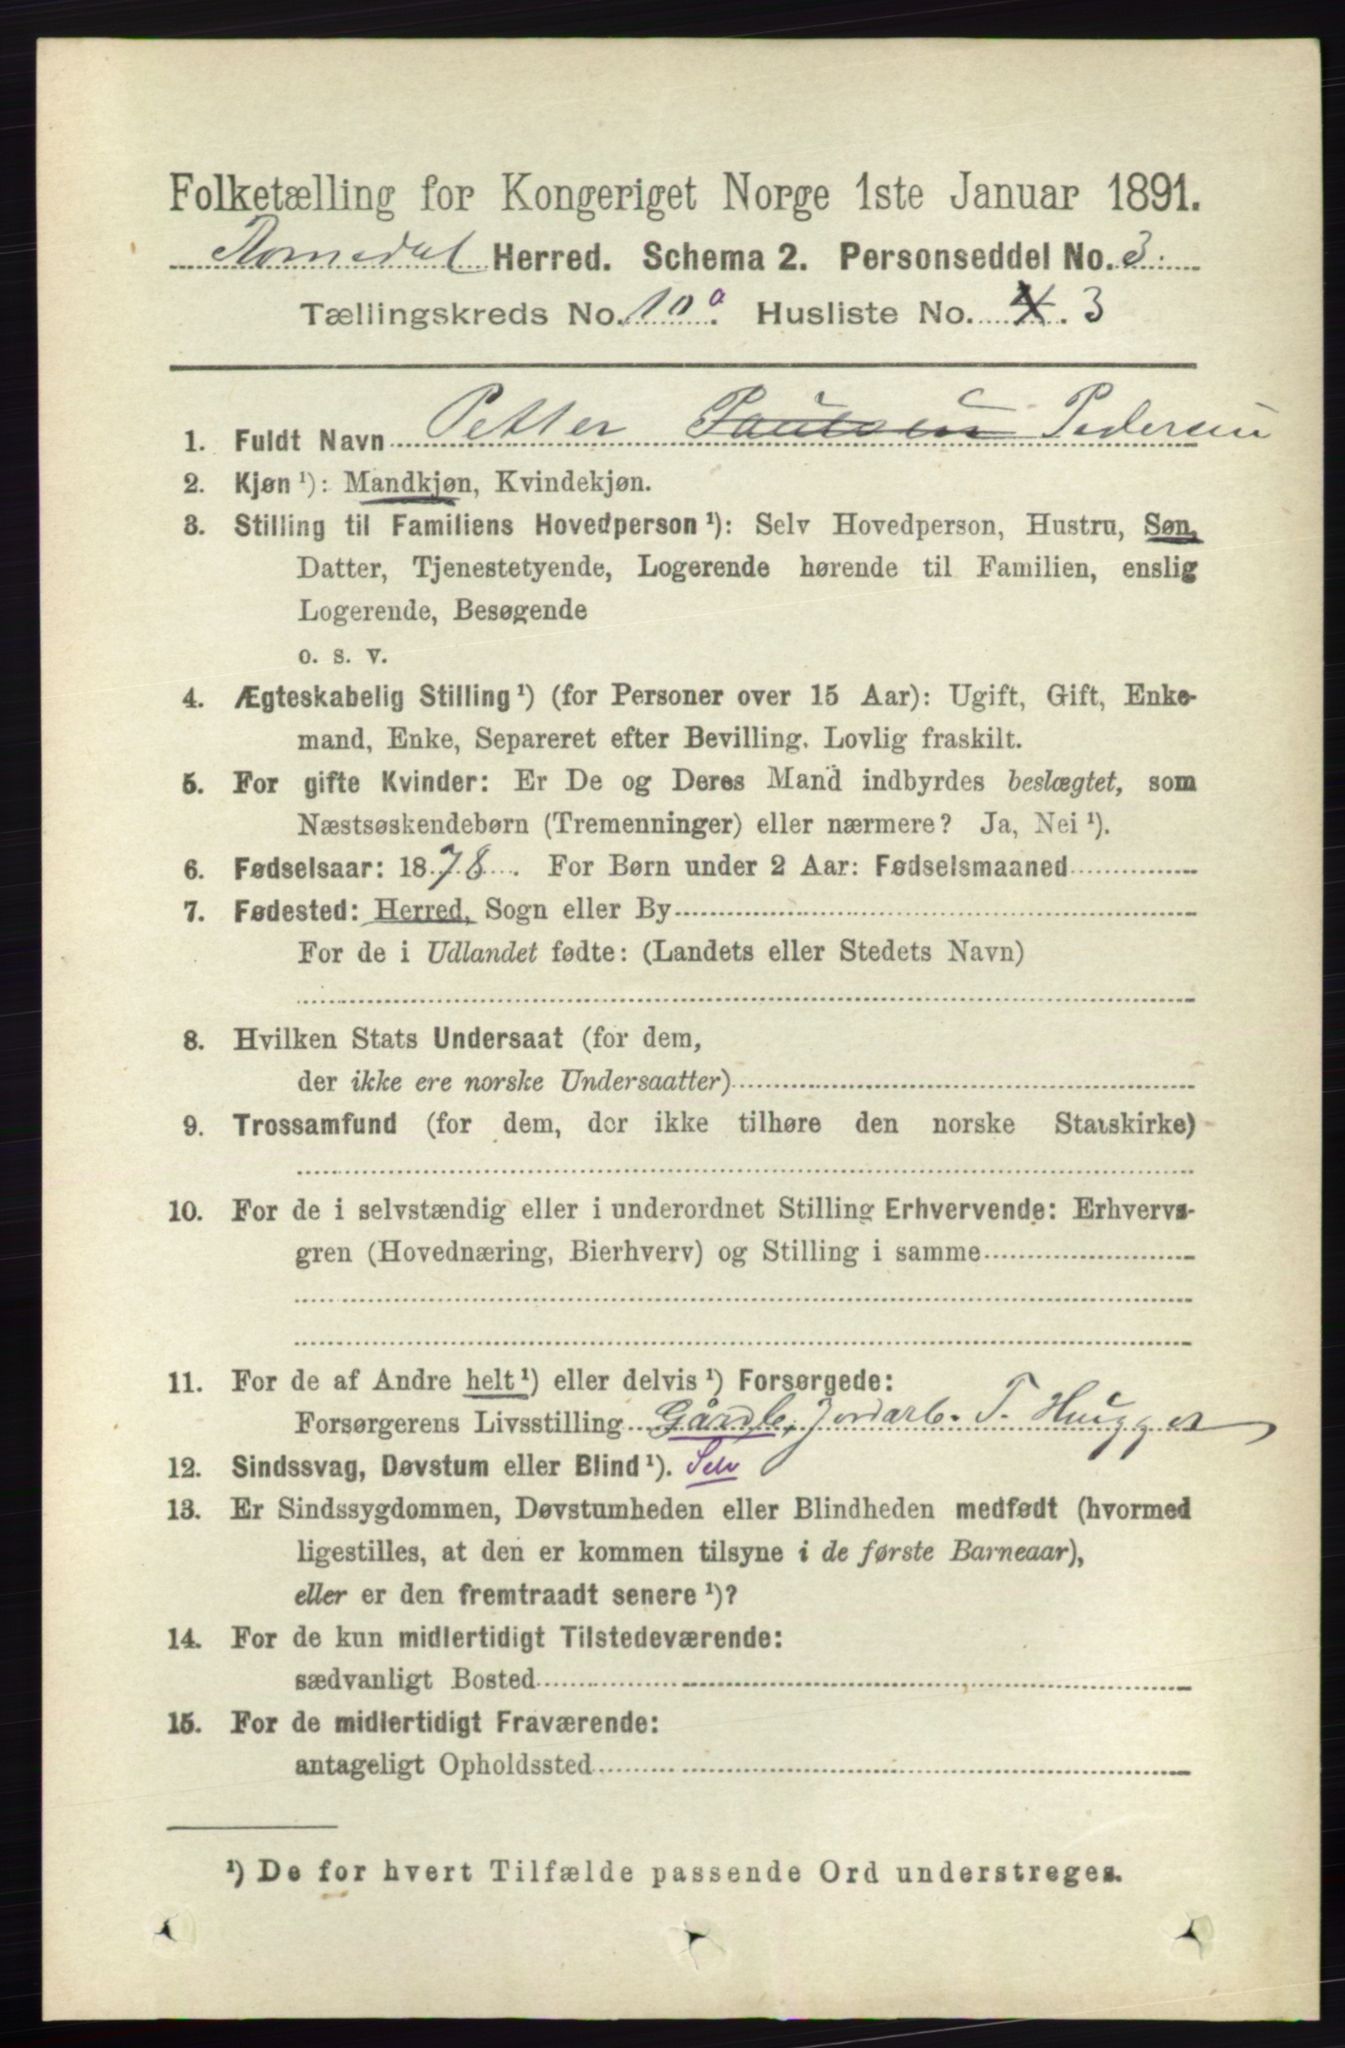 Folketælling for Kongeriget Norge 1ste Januar 1891.
Romedal Herred. Schema 2. Personseddel No. 3.
Tællingskreds No. 10a. Husliste No. 4. 3
1. Fuldt Navn Petter Paulsen Pedersen
2. Kjøn ¹): Mandkjøn, Kvindekjøn.
3. Stilling til Familiens Hovedperson ¹): Selv Hovedperson, Hustru, Søn,
Datter, Tjenestetyende, Logerende hørende til Familien, enslig
Logerende, Besøgende
o. s. v.
4. Ægteskabelig Stilling ¹) (for Personer over 15 Aar): Ugift, Gift, Enke-
mand, Enke, Separeret efter Bevilling. Lovlig fraskilt.
5. For gifte Kvinder: Er De og Deres Mand indbyrdes beslægtet, som
Næstsøskendebørn (Tremenninger) eller nærmere? Ja, Nei ¹).
6. Fødselsaar: 1878. For Børn under 2 Aar: Fødselsmaaned
7. Fødested: Herred, Sogn eller By
For de i Udlandet fødte: (Landets eller Stedets Navn)
8. Hvilken Stats Undersaat (for dem,
der ikke ere norske Undersaatter)
9. Trossamfund (for dem, der ikke tilhøre den norske Statskirke)
10. For de i selvstændig eller i underordnet Stilling Erhvervende: Erhvervs-
gren (Hovednæring, Bierhverv) og Stilling i samme
11. For de af Andre helt ¹) eller delvis ¹) Forsørgede:
Forsørgerens Livsstilling Gårdb, Jordarb. T. Hugger
12. Sindssvag, Døvstum eller Blind ¹). Selv
13. Er Sindssygdommen, Døvstumheden eller Blindheden medfødt (hvormed
ligestilles, at den er kommen tilsyne i de første Barneaar),
eller er den fremtraadt senere ¹)?
14. For de kun midlertidigt Tilstedeværende:
sædvanligt Bosted
15. For de midlertidigt Fraværende:
antageligt Opholdssted
¹) De for hvert Tilfælde passende Ord understreges.